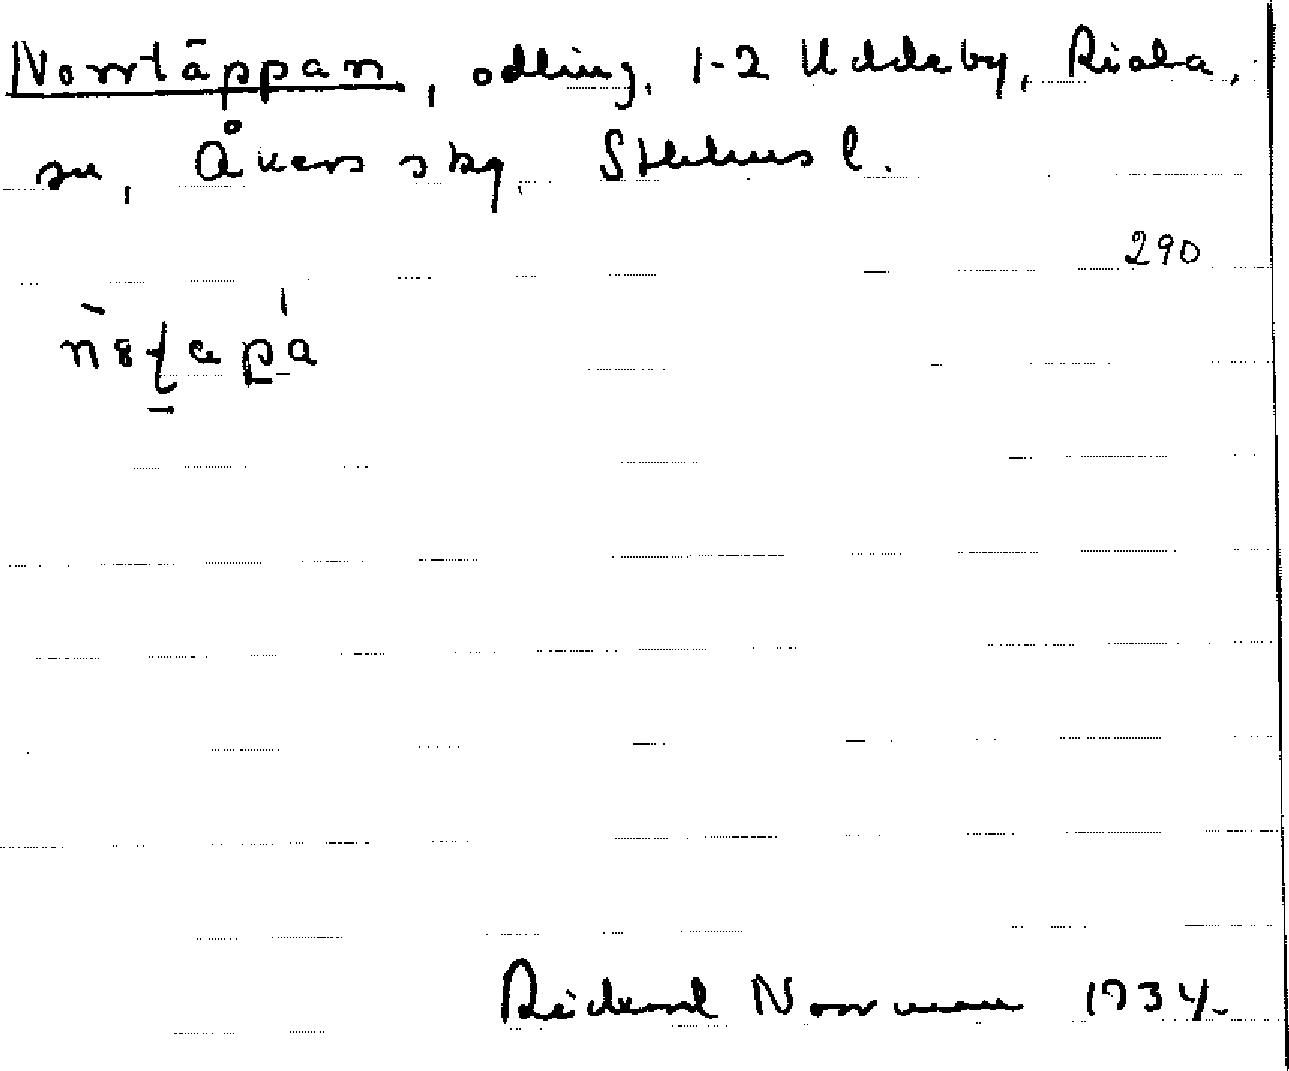 Norrtäppan, odling, 1-2 Uddeby, Riala,
sn, Åkers skg. Sthlms l.
290
Rickard Norrman 1934.